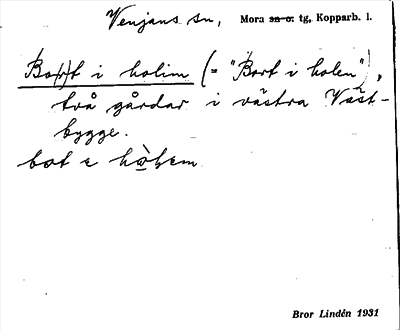 Venjans sn, Mora sn o. tg, Kopparb. l.
Bo(r)t i holim (= "Bort i holen"),
två gårdar i västra Väst-
bygge.
Bror Lindén 1931